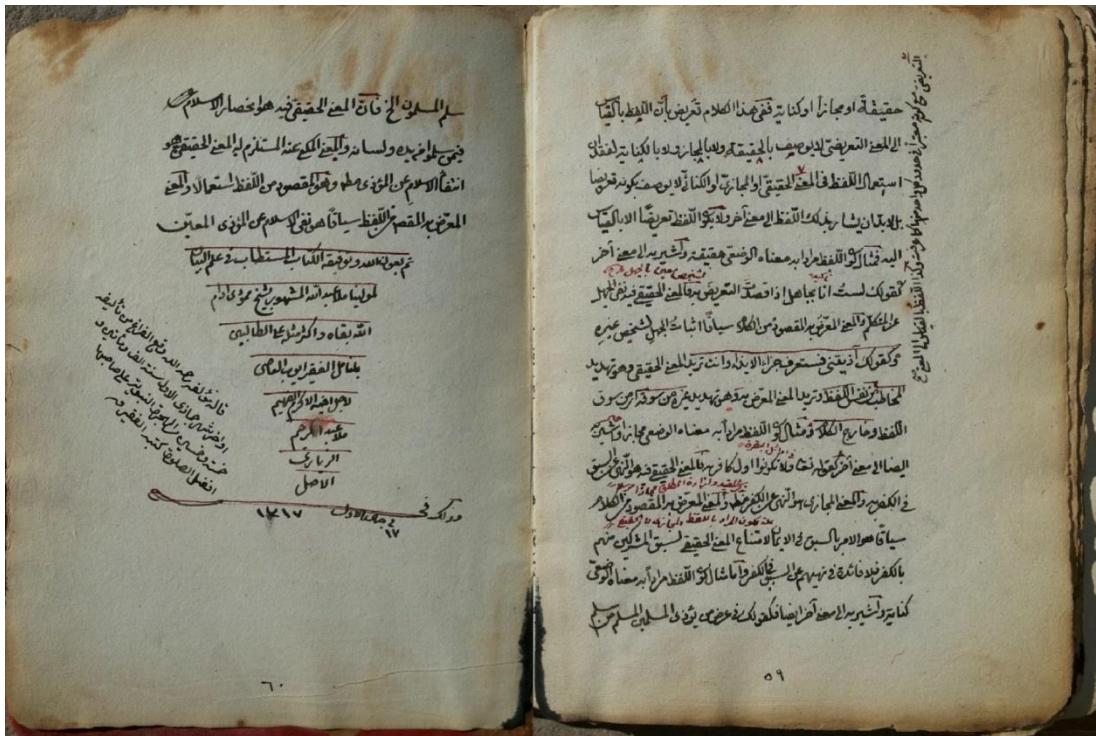 حقيقة او مجازا او كناية ففى هذا الكلام تعريض بأن اللفظ بالقياس
الى المعنى التعريضى لا يوصف بالحقيقة ولا بالمجاز ولا بالكناية لفقدان
استعمال اللفظ فى المعنى الحقيقى او المجازى او الكنائى لا يوصف بكونه تعريضا
بل لا بد ان يشار بذلك اللفظ الى معنى آخر ولا يكون اللفظ تعريضا الا بالقياس
اليه فمثال كون اللفظ مرادا به معناه الوضعى حقيقة واشير به الى معنى آخر
كقولك لست انا بجاهل اذا قصدت التعريض به فالمعنى الحقيقى فيه نفى الجهل
عن المتكلم والمعنى المعرض به المقصود من الكلام سياقا اثبات الجهل لشخص غيره
وكقولك آذيتنى فستعرف جزاء الايذاء وانت تريد المعنى الحقيقى وهو تهديد
المخاطب من نفس اللفظ وتريد المعنى المعرض به وهو تهديد غيره من سوق
اللفظ وخارج الكلام ومثال كون اللفظ مرادا به معناه الوضعى مجازا واشير به
ايضا الى معنى آخر كقوله تعالى ولا تكونوا اول كافر به فالمعنى الحقيقى فيه هو النهى عن السبق
فى الكفر به والمعنى المجازى هو النهى عن الكفر مطلقا والمعنى المعرض به المقصود من الكلام
سياقا هو الامر بالسبق فى الايمان لامتناع المعنى الحقيقى لسبق المشركين منهم
بالكفر فلا فائدة فى نهيهم عن السبق فى الكفر واما مثال كون اللفظ مرادا به معناه الوضعى
كناية واشير به الى معنى آخر ايضا فكقولك فى عرض من يؤذى المسلمين المسلم من سلم
٥٩
سلم المسلمون الخ فان المعنى الحقيقى فيه هو انحصار الاسلام
فيمن سلموا من يده ولسانه والمعنى المكنى عنه المستلزم له المعنى الحقيقى هو
انتفاء الاسلام عن المؤذى مطلقا وهو المقصود من اللفظ استعمالا والمعنى
المعرض به المقصود من اللفظ سياقا هو نفى الاسلام عن المؤذى المعين
تم بعون الله وتوفيقه الكتاب المستطاب فى علم البيان
لمولينا ملا عبد الله المشهور بشيخ ادام
الله بقاه واكثر مثله على الطالبين
الفقير
لاجل اخيه الاكرم
ملا عبد الكريم
الاصل
وذلك فى
١٧ فى جمادى الاول ١٣١٧
قال مؤلفه رحمه الله وقع الفراغ من تأليفه
خمسة وخمسين من الهجرة النبوية على صاحبها
افضل الصلوة كتبه الفقير
٦٠